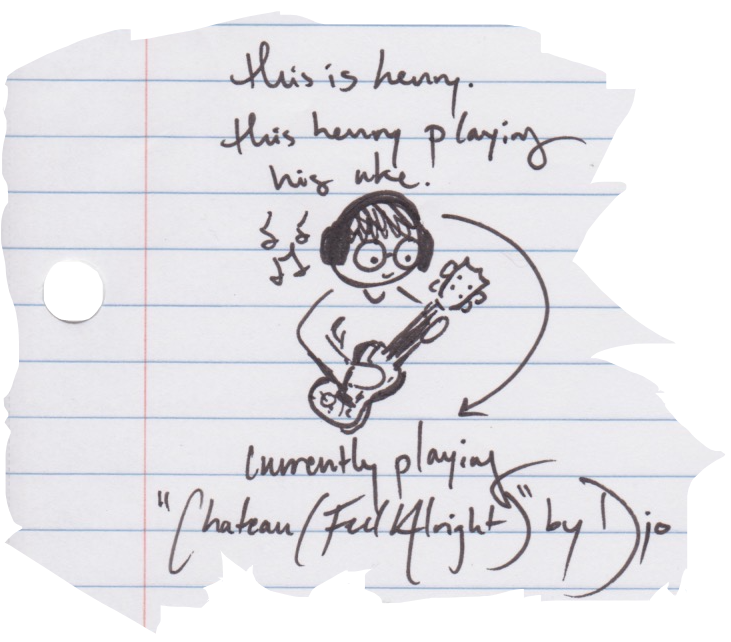 this is henry.
this henry playing
his uke.
currently playing
"Chateau (Feel Alright)" by Djo